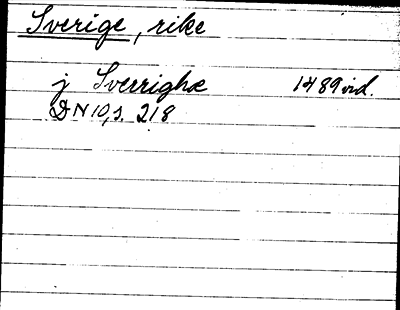 Sverige, rike
j Sverrighæ 1489 vid.
DN 10, s. 218